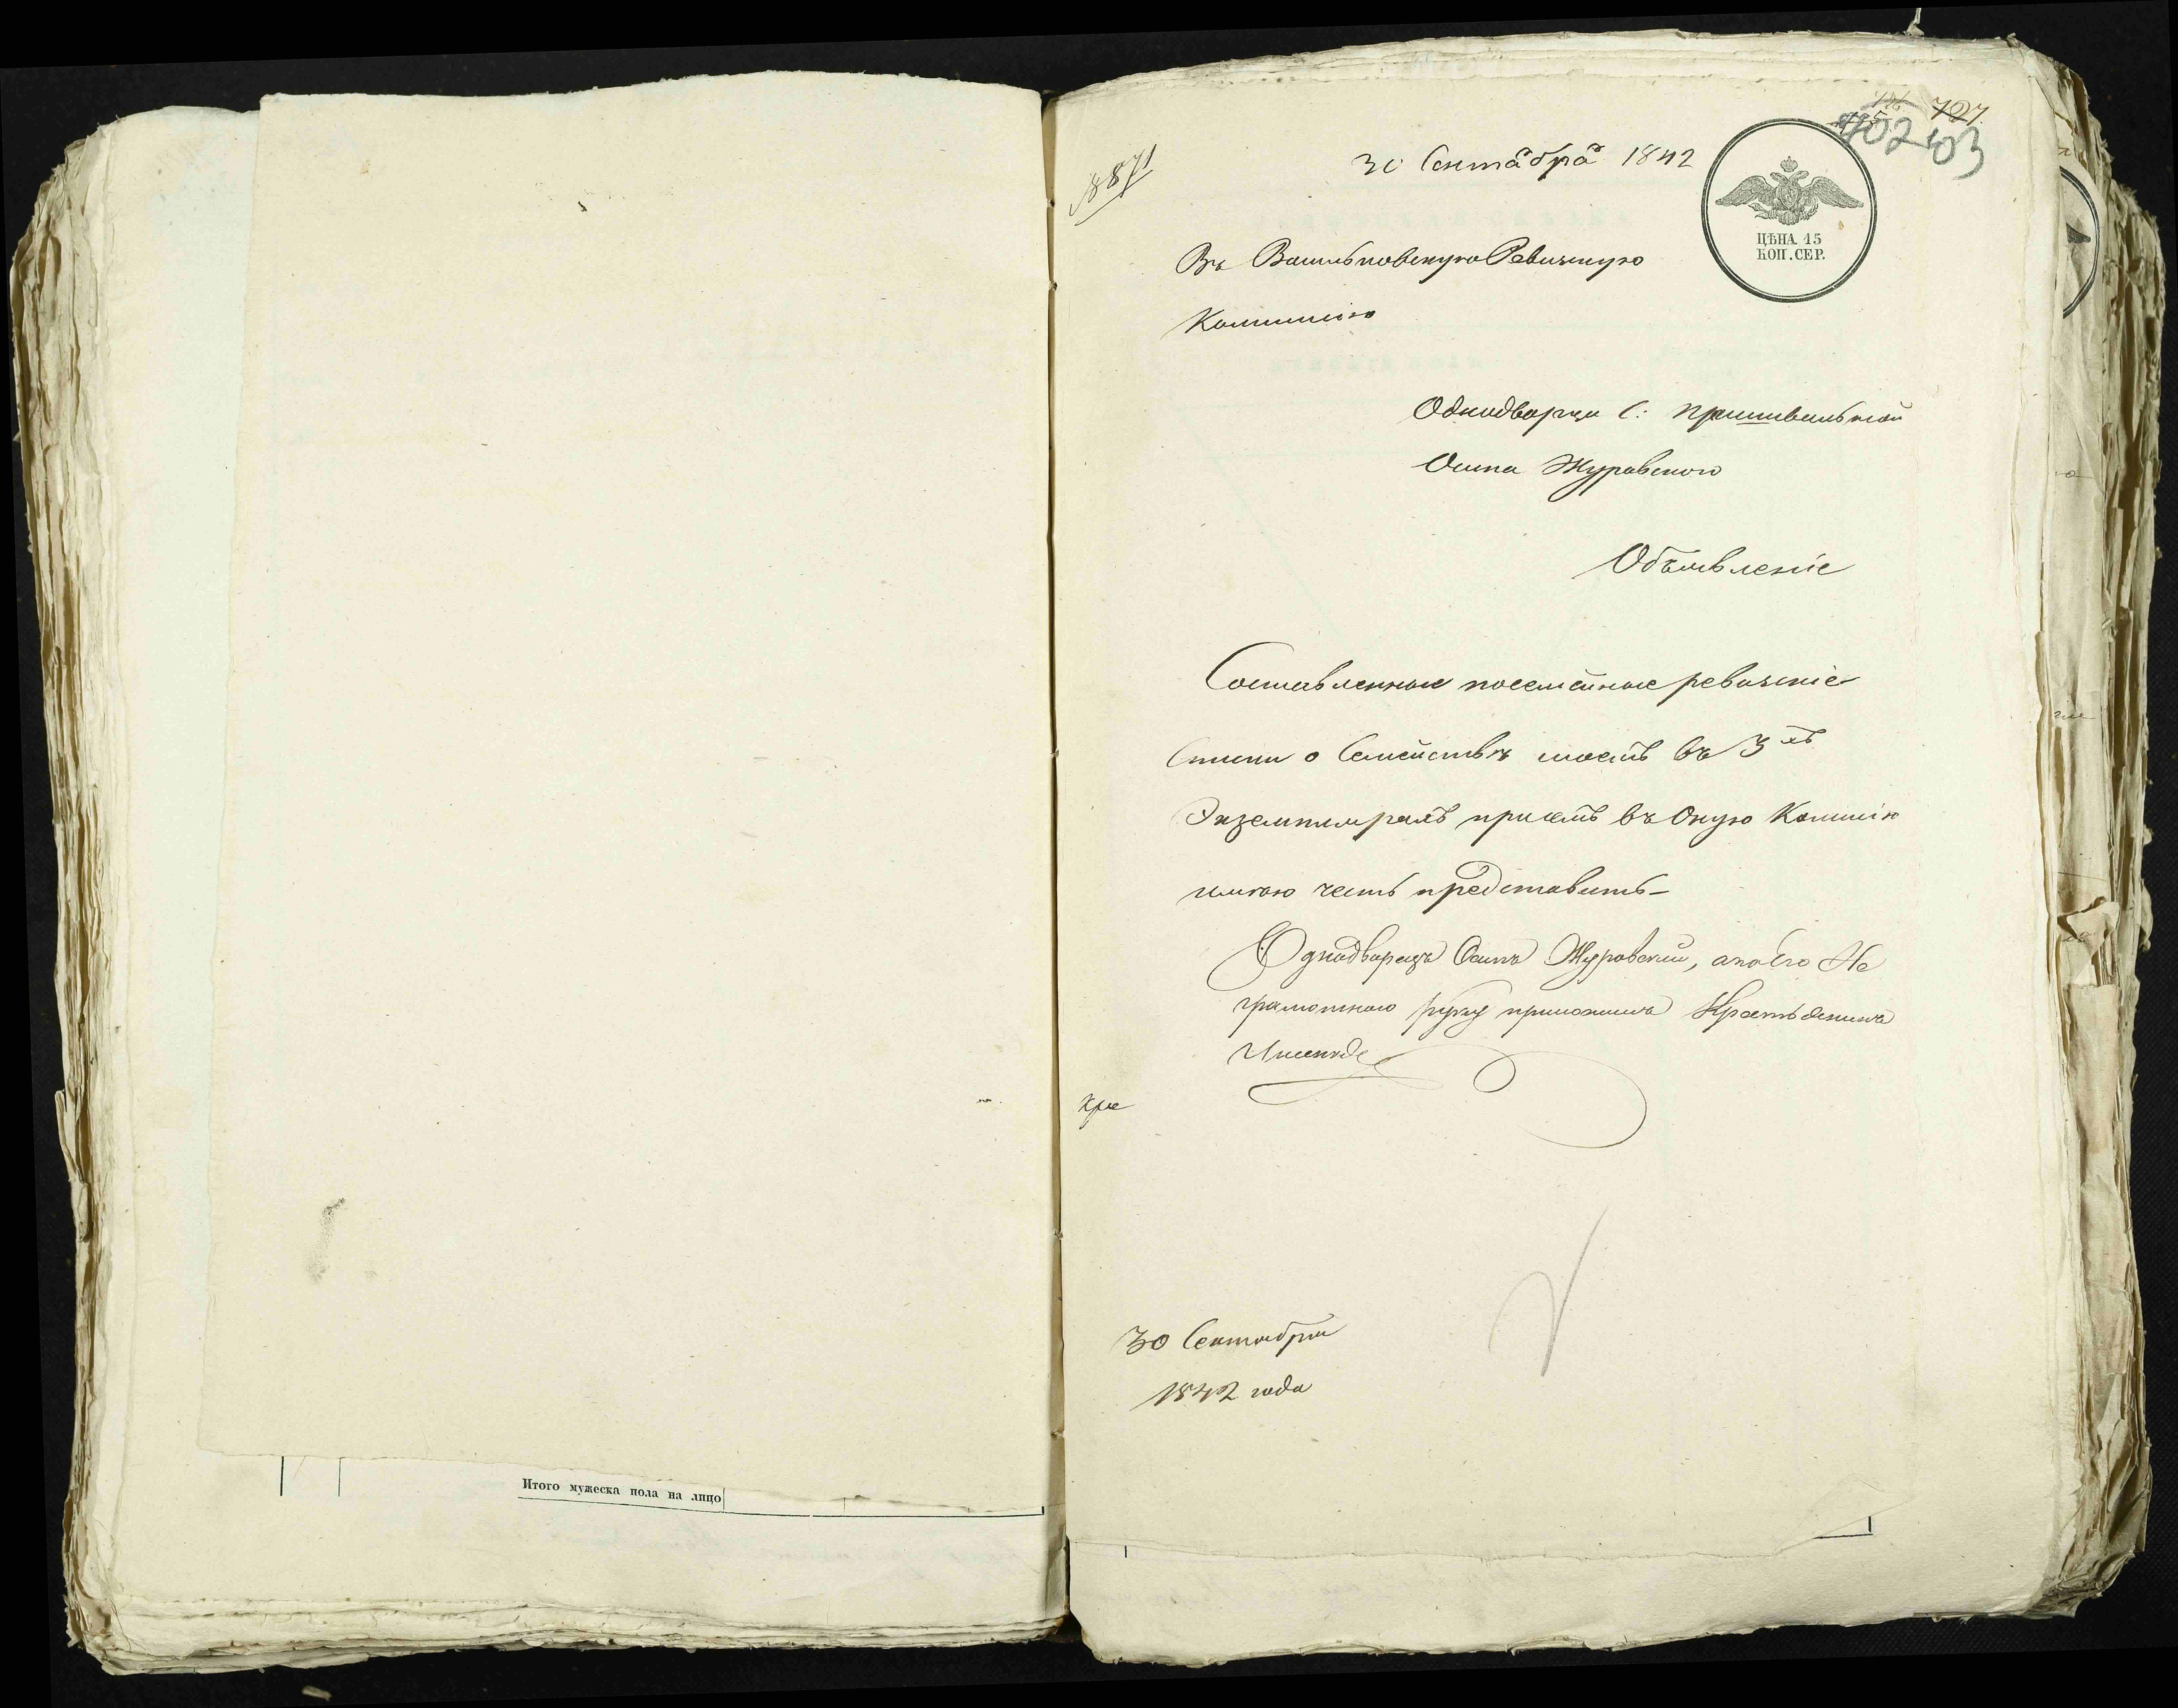 Итого мужеска пола на лицо
727
403
30 Сентября 1842
ЦѢНА 15
КОП. СЕР.
Въ Васильковскую Ревизскую
Коммисію
Однодворца С:
Осипа Журавского
Объявленіе
Составленные посемейные ревизскіе
Списки о Семействѣ моемъ въ 3хъ
Экземплярахъ при семъ въ Оную Комисію
имѣю честь представить
Однодворецъ Осипъ Журавский, а по Его Не
грамотною руку приложилъ
кре
30 Сентября
1842 года